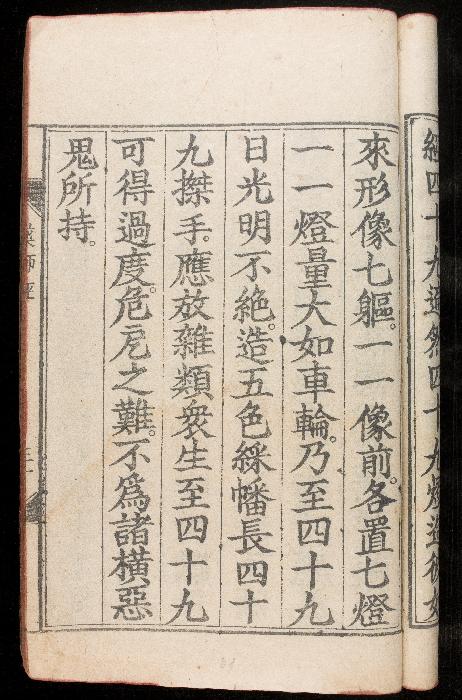 經四十九遍然四十九燈造彼如
來形像七軀。一一像前。各置七燈
一一燈量大如車輪。乃至四十九
日光明不絶。造五色綵幡長四十
九搩手。應放雜類衆生至四十九
可得過度。危厄之難。不爲諸橫惡
鬼所持。
藥師經